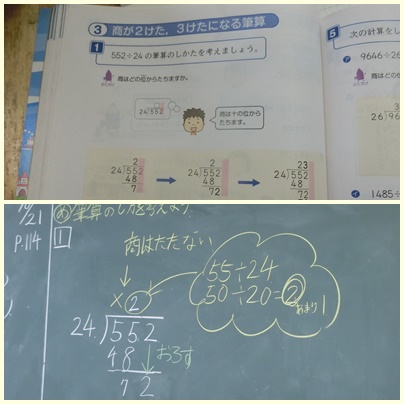 3 商が2けた，3けたになる筆算
1 552÷24の筆算のしかたを考えましょう。
商はどの位からたちますか。
24)552
商は十の位から
たちます。
2
24)552
48
7
2
24)552
48
72
23
24)552
48
72
5 次の計算をし
ア 9646÷26
商はどの
3
26)96
イ 1485÷
21
P.114
め 筆算のしかたを考えよう
1
商はたたない
× 2
24)552
48 おろす
72
55÷24
50÷20=2
あまり1